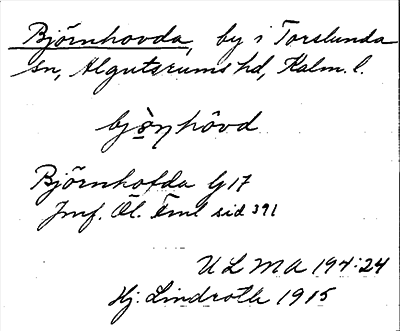 Björnhovda, by i Torslunda
sn, Algutsrums hd, Kalm. l.
bjò̠ŋhôvd
Björnhofda G17
Jmf. Öl. Fml sid 391
ULMA 194:24
Hj. Lindroth 1915